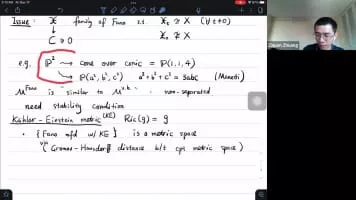 Issue : 𝒳 family of Fano s.t. 𝒳_t ≅ X (∀t≠0)
↓
C ∋ 0 𝒳_0 ≇ X
e.g. P² ⇝ cone over conic = P(1,1,4)
⇝ P(a², b², c²) a²+b²+c² = 3abc (Markov)
M^Fano is similar to M^v.b. : non-separated
need stability condition
Kähler-Einstein metric (KE) Ric(g) = g
• {Fano mfd w/ KE} is a metric space
(Gromov-Hausdorff distance b/t cpt metric space)